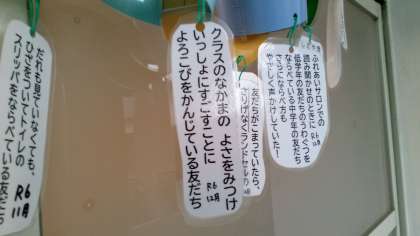 ふれあいサロンでの
読み聞かせのときに
低学年の友だちのうわぐつを
ならべている中学年の友だち
さらにならべ方も
やさしく声かけしていた！
R6
11月
友だちがこまっていたら、
さりげなくランドセルの
クラスのなかまの よさをみつけ
いっしょにすごすことに
よろこびをかんじている友だち
R6
12月
だれも見ていなくても、
ひざをついてトイレの
スリッパをならべている友だち
R6
11月